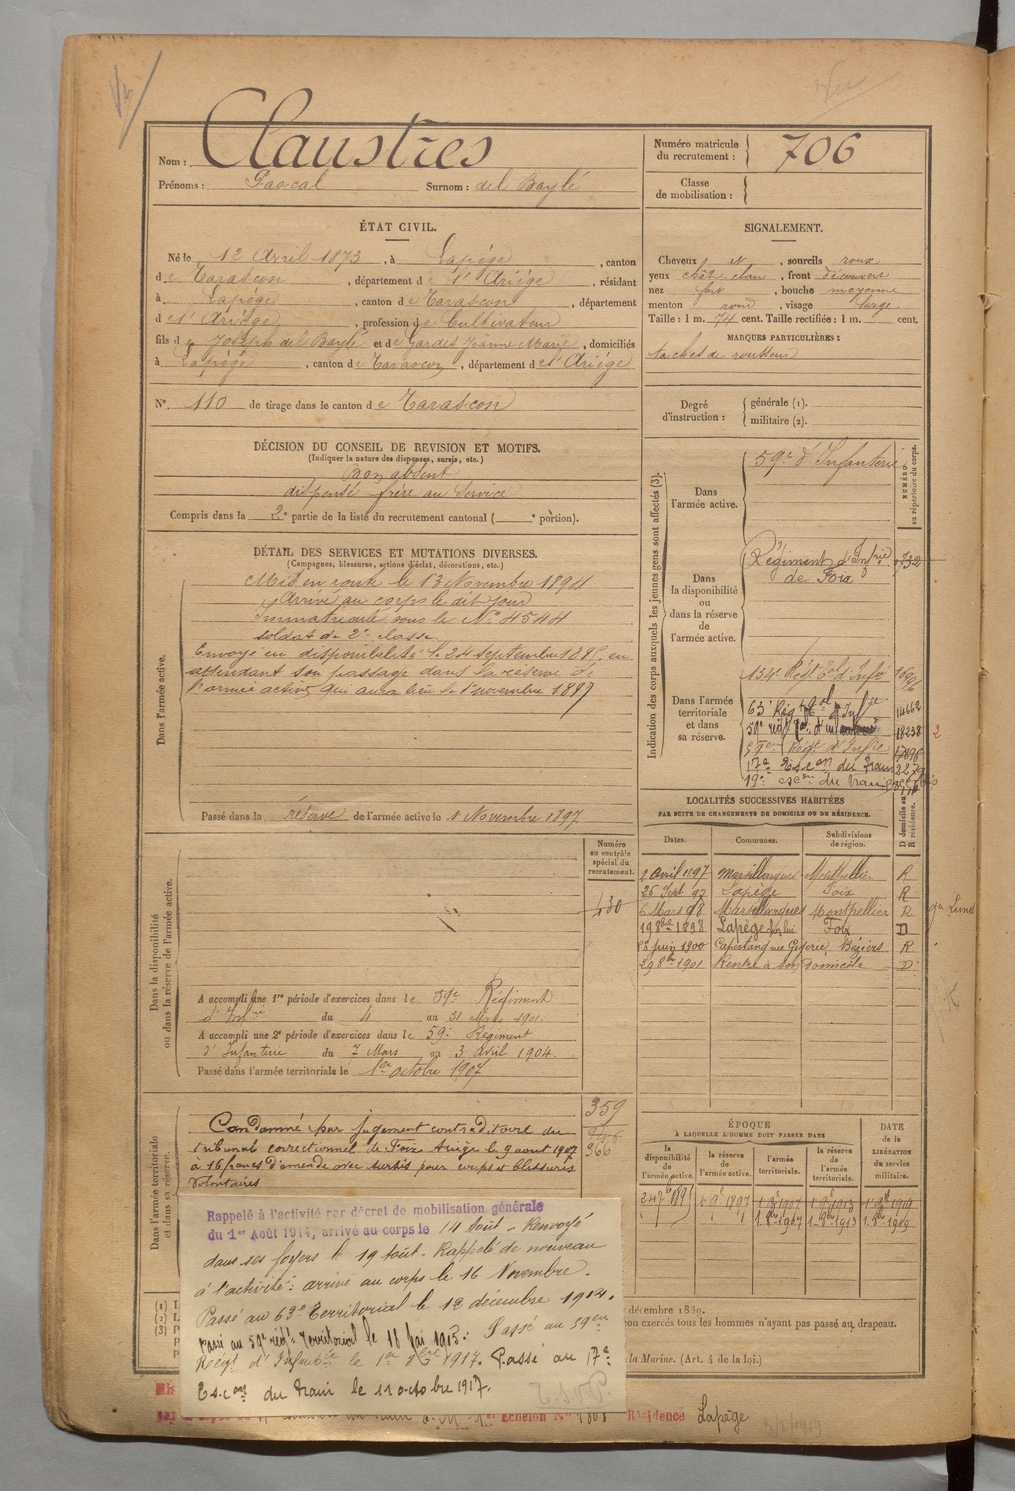 Nom : Claustres
Prénoms : Pascal Surnom : del Baylé
Numéro matricule du recrutement : 706
Classe de mobilisation :
ÉTAT CIVIL.
Né le 12 Avril 1873, à Lapège, canton
de Tarascon, département de l'Ariège, résidant
à Lapège, canton de Tarascon, département
de l'Ariège, profession de Cultivateur
fils de Joseph del Baylé et de Gardes Jeanne Marie, domiciliés
à Lapège, canton de Tarascon, département de l'Ariège
N° 110 de tirage dans le canton de Tarascon
SIGNALEMENT.
Cheveux et, sourcils roux
yeux chât. clair, front découvert
nez fort, bouche moyenne
menton rond, visage large
Taille : 1 m. 74 cent. Taille rectifiée : 1 m. cent.
MARQUES PARTICULIÈRES :
taches de rousseur
Degré d'instruction : générale (1).
militaire (2).
DÉCISION DU CONSEIL DE REVISION ET MOTIFS.
(Indiquer la nature des dispenses, sursis, etc.)
Bon absent
dispensé frère au service
Compris dans la 2e partie de la liste du recrutement cantonal ( e portion).
DÉTAIL DES SERVICES ET MUTATIONS DIVERSES.
(Campagnes, blessures, actions d'éclat, décorations, etc.)
Dans l'armée active.
Mis en route le 13 Novembre 1894
Arrivé au corps le dit jour
Immatriculé sous le N° 4544
soldat de 2e classe.
Envoyé en disponibilité le 24 septembre 1895, en
attendant son passage dans la réserve de
l'armée active qui aura lieu le 1er novembre 1897
Passé dans la réserve de l'armée active le 1 Novembre 1897
Indication des corps auxquels les jeunes gens sont affectés (3).
NUMÉRO au répertoire du corps.
Dans l'armée active.
59e d'Infanterie
Dans la disponibilité ou dans la réserve de l'armée active.
Régiment d'Infrie
de Foix
Dans l'armée territoriale et dans sa réserve.
134e Régt Tal d'Infie
63e Régt Tal d'Infie
59e régt Tal d'infanterie 18238
59e Régt d'Infie
17e Escon du Train
19e escon du Train
LOCALITÉS SUCCESSIVES HABITÉES
PAR SUITE DE CHANGEMENTS DE DOMICILE OU DE RÉSIDENCE.
Dates. Communes. Subdivisions de région. D domicile ou R résidence.
2 Avril 1897 Marsillargues Montpellier R
26 Sept 97 Lapège Foix R
6 Mars 98 Marsillargues Montpellier R
19 8bre 1898 Lapège Foix D
juin 1900 Capestang Béziers R
29 8bre 1901 Rentré à son Domicile D
Dans la disponibilité ou dans la réserve de l'armée active.
Numéro au contrôle spécial du recrutement.
430
A accompli une 1re période d'exercices dans le 59e Régiment
d'Infie du 4 au 31 Mars 1901.
A accompli une 2e période d'exercices dans le 59e Régiment
d'Infanterie du 7 Mars au 3 avril 1904.
Passé dans l'armée territoriale le 1er octobre 1907
Dans l'armée territoriale et dans sa réserve.
359
366
Condamné par jugement contradictoire du
tribunal correctionnel de Foix Ariège le 9 aout 1907
à 16 francs d'amende avec sursis pour coups et blessures
volontaires
ÉPOQUE
À LAQUELLE L'HOMME DOIT PASSER DANS
la disponibilité de l'armée active.
la réserve de l'armée active.
l'armée territoriale.
la réserve de l'armée territoriale.
DATE de la LIBÉRATION du service militaire.
Rappelé à l'activité par décret de mobilisation générale
du 1er Août 1914, arrivé au corps le 14 Août - Renvoyé
dans ses foyers le 19 Août - Rappelé de nouveau
à l'activité : arrivé au corps le 16 Novembre.
Passé au 63e Territorial le 12 décembre 1914.
Passé au 59e régt Territorial le 18 Mai 1915. Passé au 59em
Régt d'Infanterie le 1er 8bre 1917. Passé au 17e
Escon du Train le 11 octobre 1917.
décembre 1889.
non exercés tous les hommes n'ayant pas passé au drapeau.
la Marine. (Art. 4 de la loi.)
Echelon N° Résidence Lapège